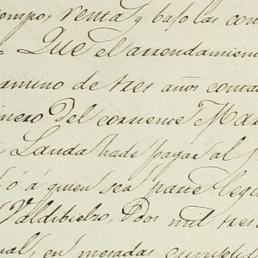 tiempo, renta, y bajo las con
Que el arrendamien
camino de tres años conta
nero del corriente Mar
Landa hade pagar al
ó á quien sea parte legi
Valdibielso, Dos mil tres
ual, en mesadas cumplid